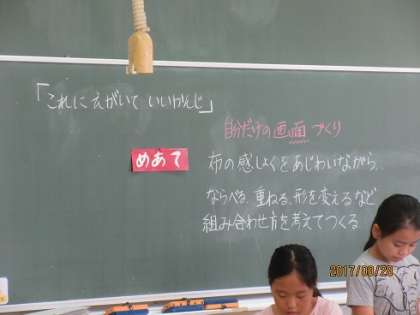 「これにえがいていいかんじ」
自分だけの画面づくり
めあて
布の感しょくをあじわいながら、
ならべる、重ねる、形を変えるなど
組み合わせ方を考えてつくる
2017/06/20